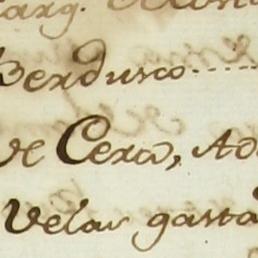 Berdusco
de Cera, Ad
Velas gasta